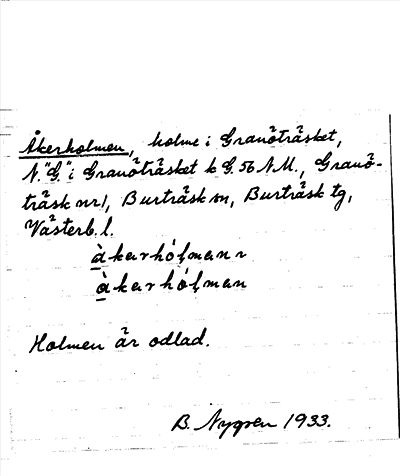 Åkerholmen, holme i Granöträsket,
N. "G" i Granöträsket k G. 56 N.M., Granö-
träsk nr 1, Burträsk sn, Burträsk tg,
Västerb. l.
àkerhólmann
àkerhólman
Holmen är odlad.
B. Nygren 1933.